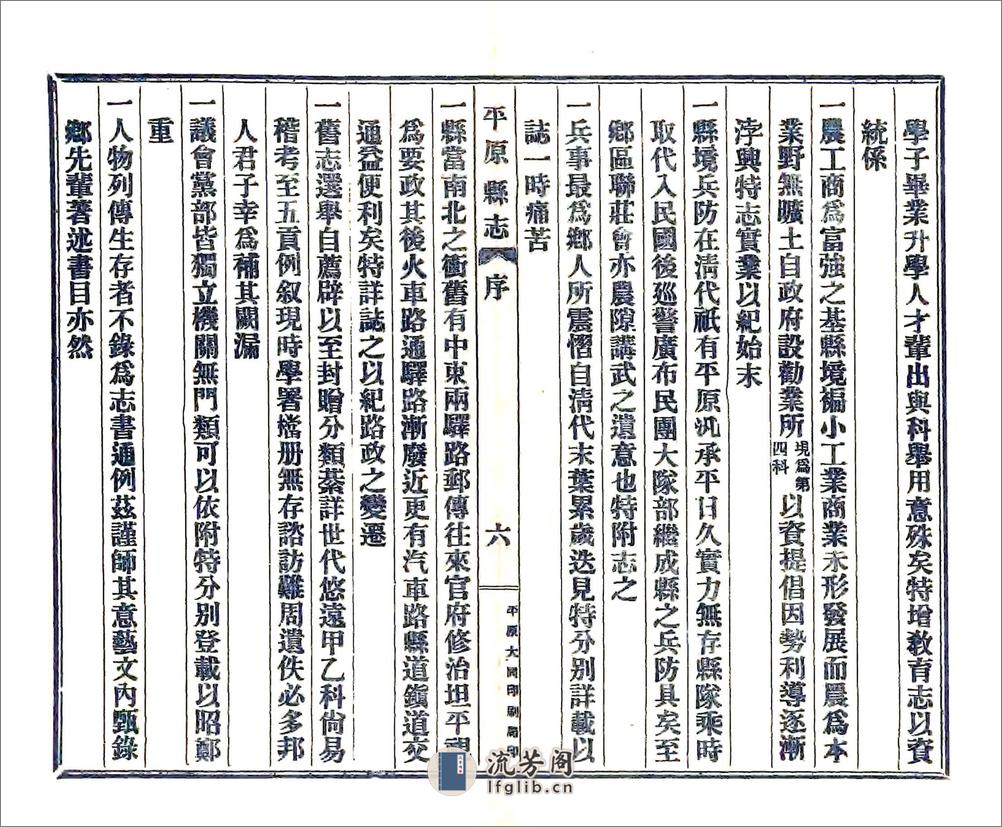 學子畢業升學人才輩出與科舉用意殊矣特增敎育志以資
統係
一農工商爲富強之基縣境褊小工業商業未形發展而農爲本
業野無曠土自政府設勸業所現爲第四科以資提倡因勢利導逐漸
浡興特志實業以紀始末
一縣境兵防在淸代祇有平原汛承平日久實力無存縣隊乘時
取代入民國後巡警廣布民團大隊部繼成縣之兵防具矣至
鄕區聯莊會亦農隙講武之遺意也特附志之
一兵事最爲鄕人所震慴自淸代末葉累歲迭見特分別詳載以
誌一時痛苦
平原縣志 序 六 平原大同印刷局印
一縣當南北之衝舊有中東兩驛路郵傳往來官府修治坦平視
爲要政其後火車路通驛路漸廢近更有汽車路縣道鎭道交
通益便利矣特詳誌之以紀路政之變遷
一舊志選舉自薦辟以至封贈分類綦詳世代悠遠甲乙科尙易
稽考至五貢例叙現時學署檔册無存諮訪難周遺佚必多邦
人君子幸爲補其闕漏
一議會黨部皆獨立機關無門類可以依附特分別登載以昭鄭
重
一人物列傳生存者不錄爲志書通例茲謹師其意藝文內甄錄
鄕先輩著述書目亦然
流芳阁
lfglib.cn